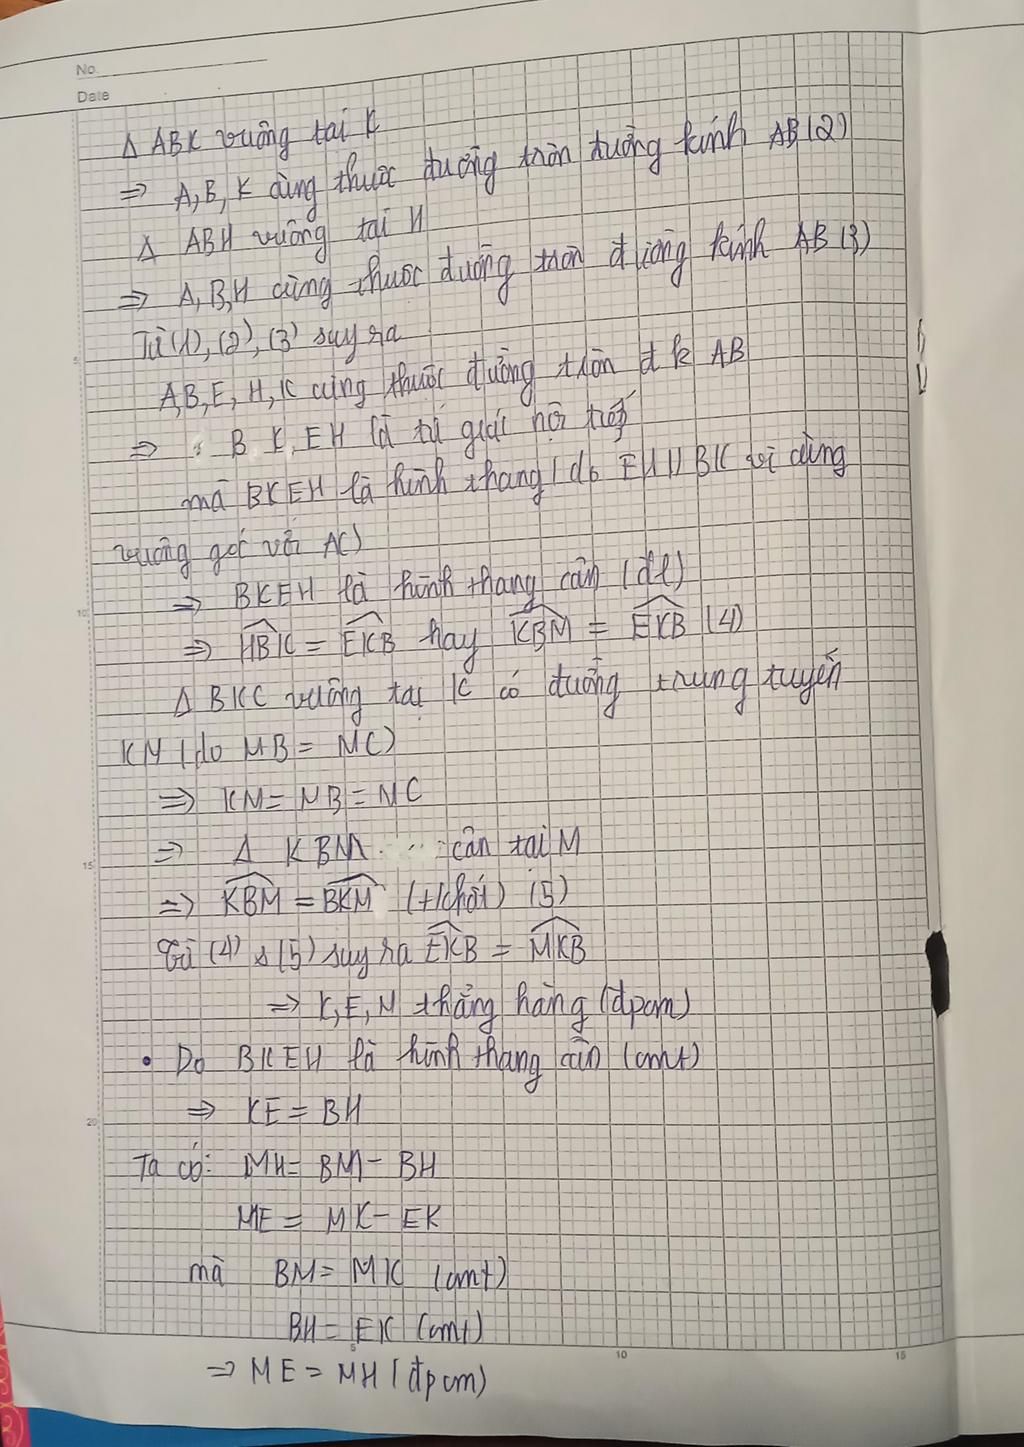 No.
Date
Δ ABK vuông tại K
⇒ A, B, K cùng thuộc đường tròn đường kính AB (2)
Δ ABH vuông tại H
⇒ A, B, H cùng thuộc đường tròn đường kính AB (3)
Từ (1), (2), (3) suy ra
A, B, E, H, K cùng thuộc đường tròn đk AB
⇒ B K, EH là tứ giác nội tiếp
mà BKEH là hình thang (do EH // BK vì cùng
vuông góc với AC)
⇒ BKEH là hình thang cân (đl)
⇒ \widehat{HBK} = \widehat{EKB} hay \widehat{KBM} = \widehat{EKB} (4)
Δ BKC vuông tại K có đường trung tuyến
KM (do MB = MC)
⇒ KM = MB = MC
⇒ Δ KBM cân tại M
⇒ \widehat{KBM} = \widehat{BKM} (t/chất) (5)
Từ (4) & (5) suy ra \widehat{EKB} = \widehat{MKB}
⇒ K, E, M thẳng hàng (đpcm)
• Do BKEH là hình thang cân (cmt)
⇒ KE = BH
Ta có: MH = BM - BH
ME = MK - EK
mà BM = MK (cmt)
BH = EK (cmt)
⇒ ME = MH (đpcm)
5
10
15
20
5
10
15